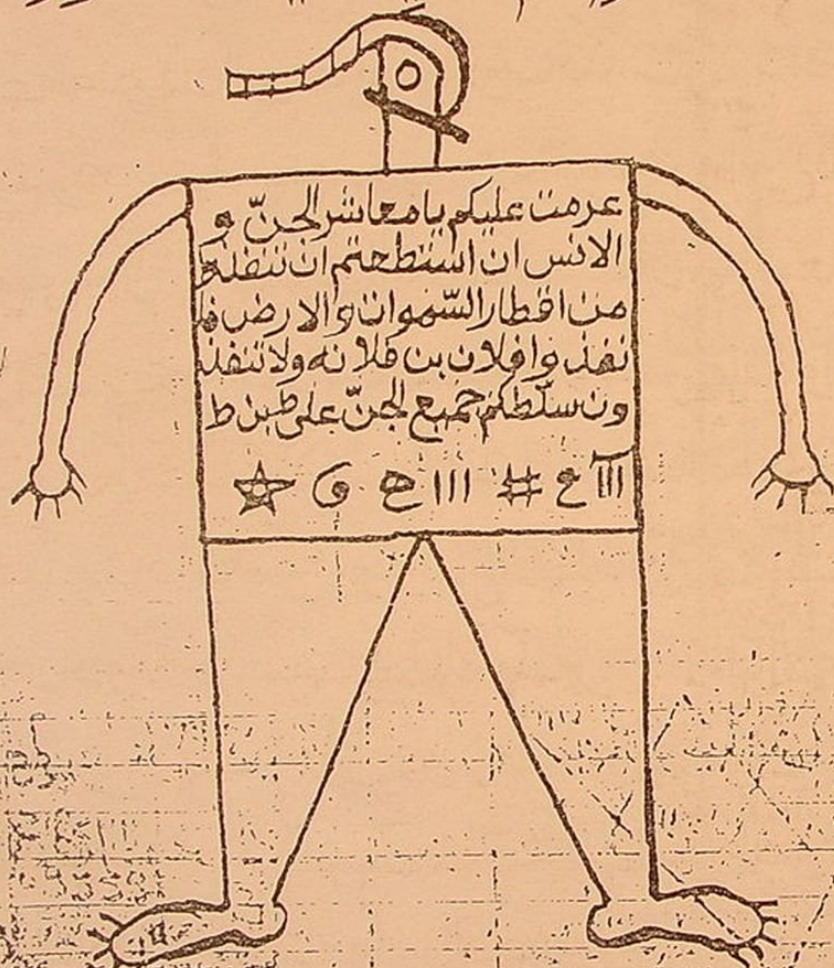 عزمت عليكم يا معاشر الجنّ و
الانس ان استطعتم ان تنفذو
من اقطار السّموات والارض فا
نفذوا فلان بن فلانه ولا تنفذ
ون سلّطكم جميع الجنّ على ط بن ط